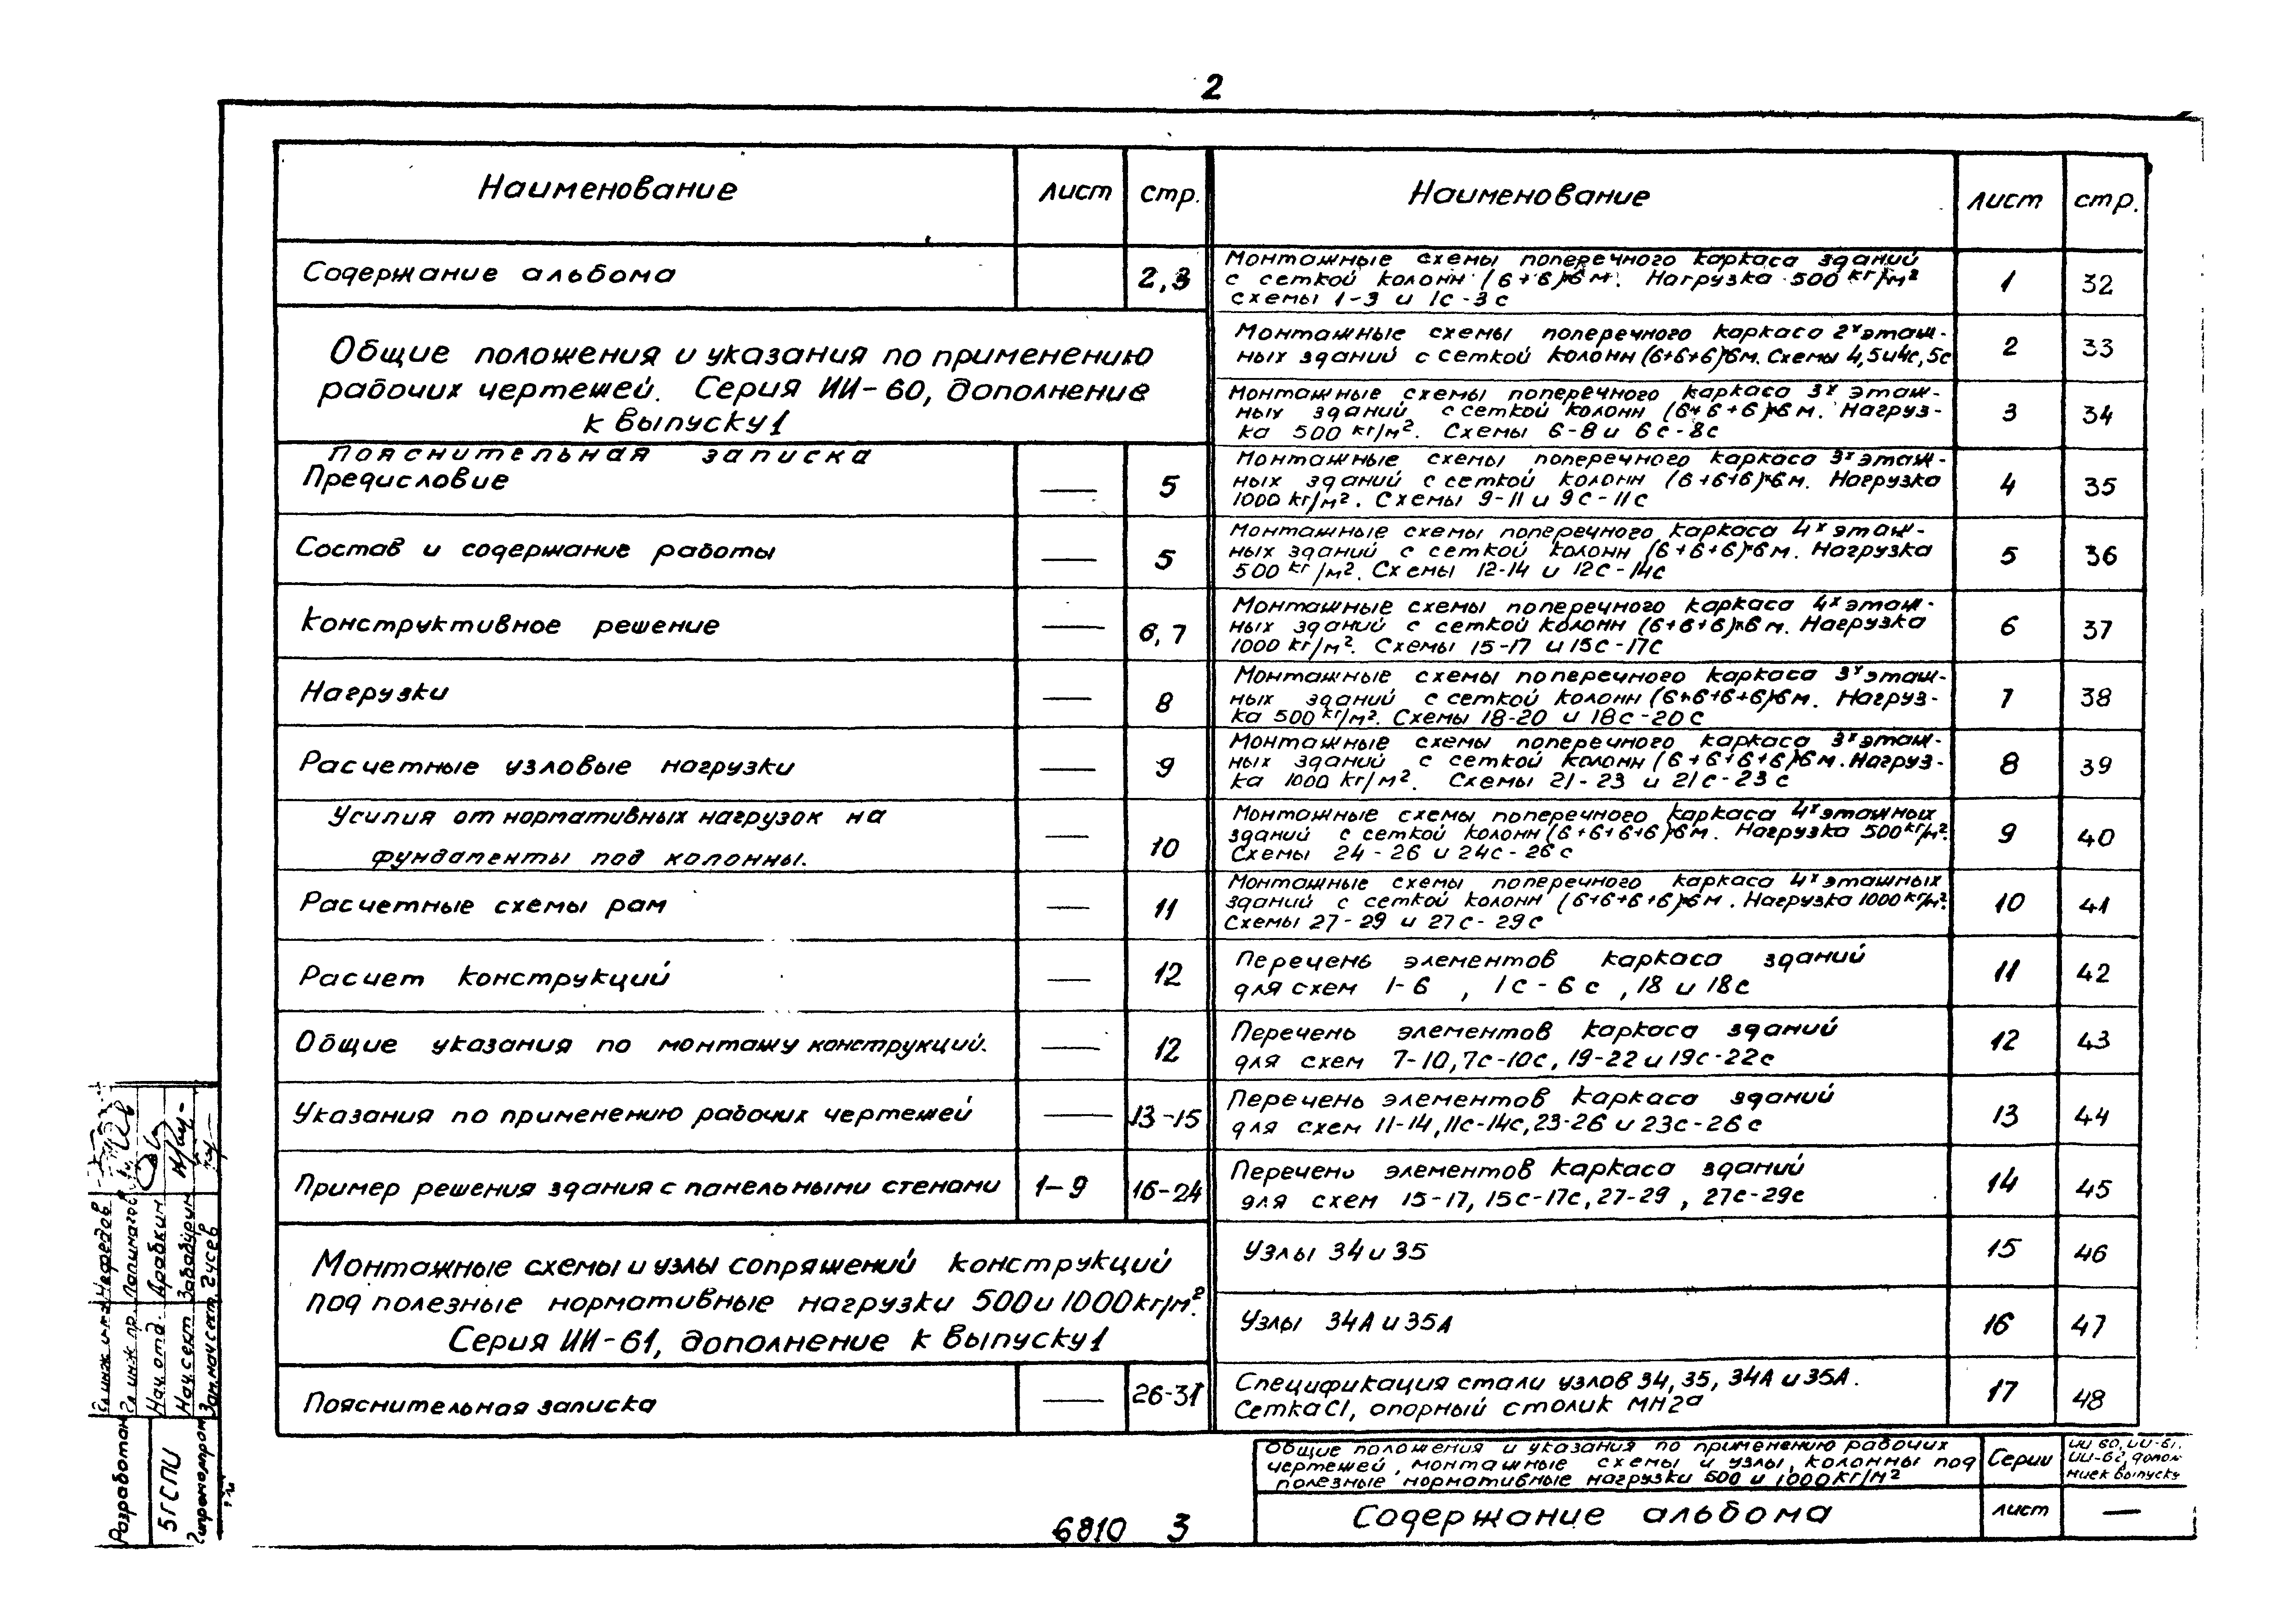 2
Наименование лист стр.
Содержание альбома 2,3
Общие положения и указания по применению
рабочих чертежей. Серия ИИ-60, дополнение
к выпуску 1
Пояснительная записка
Предисловие — 5
Состав и содержание работы — 5
Конструктивное решение — 6,7
Нагрузки — 8
Расчетные узловые нагрузки — 9
Усилия от нормативных нагрузок на
фундаменты под колонны. — 10
Расчетные схемы рам — 11
Расчет конструкций — 12
Общие указания по монтажу конструкций. — 12
Указания по применению рабочих чертежей — 13-15
Пример решения здания с панельными стенами 1-9 16-24
Монтажные схемы и узлы сопряжений конструкций
под полезные нормативные нагрузки 500 и 1000 кг/м².
Серия ИИ-61, дополнение к выпуску 1
Пояснительная записка — 26-31
Наименование лист стр.
Монтажные схемы поперечного каркаса зданий
с сеткой колонн (6+6)×6м. Нагрузка 500 кг/м² 1 32
схемы 1-3 и 1с-3с
Монтажные схемы поперечного каркаса 2х этаж-
ных зданий с сеткой колонн (6+6+6)×6м. Схемы 4,5 и 4с,5с 2 33
Монтажные схемы поперечного каркаса 3х этаж-
ных зданий с сеткой колонн (6+6+6)×6м. Нагруз- 3 34
ка 500 кг/м². Схемы 6-8 и 6с-8с
Монтажные схемы поперечного каркаса 3х этаж-
ных зданий с сеткой колонн (6+6+6)×6м. Нагрузка 4 35
1000 кг/м². Схемы 9-11 и 9с-11с
Монтажные схемы поперечного каркаса 4х этаж-
ных зданий с сеткой колонн (6+6+6)×6м. Нагрузка 5 36
500 кг/м². Схемы 12-14 и 12с-14с
Монтажные схемы поперечного каркаса 4х этаж-
ных зданий с сеткой колонн (6+6+6)×6м. Нагрузка 6 37
1000 кг/м². Схемы 15-17 и 15с-17с
Монтажные схемы поперечного каркаса 3х этаж-
ных зданий с сеткой колонн (6+6+6+6)×6м. Нагруз- 7 38
ка 500 кг/м². Схемы 18-20 и 18с-20с
Монтажные схемы поперечного каркаса 3х этаж-
ных зданий с сеткой колонн (6+6+6+6)×6м. Нагруз- 8 39
ка 1000 кг/м². Схемы 21-23 и 21с-23с
Монтажные схемы поперечного каркаса 4х этажных
зданий с сеткой колонн (6+6+6+6)×6м. Нагрузка 500 кг/м². 9 40
Схемы 24-26 и 24с-26с
Монтажные схемы поперечного каркаса 4х этажных
зданий с сеткой колонн (6+6+6+6)×6м. Нагрузка 1000 кг/м². 10 41
Схемы 27-29 и 27с-29с
Перечень элементов каркаса зданий
для схем 1-6, 1с-6с, 18 и 18с 11 42
Перечень элементов каркаса зданий
для схем 7-10, 7с-10с, 19-22 и 19с-22с 12 43
Перечень элементов каркаса зданий
для схем 11-14, 11с-14с, 23-26 и 23с-26с 13 44
Перечень элементов каркаса зданий
для схем 15-17, 15с-17с, 27-29, 27с-29с 14 45
Узлы 34 и 35 15 46
Узлы 34А и 35А 16 47
Спецификация стали узлов 34, 35, 34А и 35А.
Сетка С1, опорный столик МН2а 17 48
Общие положения и указания по применению рабочих
чертежей, монтажные схемы и узлы, колонны под
полезные нормативные нагрузки 500 и 1000 кг/м²
Серии
ИИ 60, ИИ-61,
ИИ-62, допол
ниек выпуску
Содержание альбома
лист —
6810 3
Разработан
5ГСПИ
Гипромонпром
Гл инж ин-та Нефедов
Гл инж пр.
Нач отд. Драбкин
Нач сект.
Зам.нач сект. Гусев